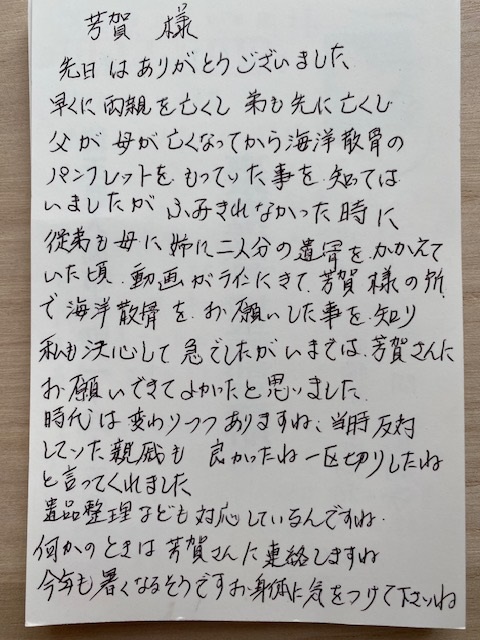 芳賀 様
先日はありがとうございました
早くに両親を亡くし 弟も先に亡くし
父が母が亡くなってから海洋散骨の
パンフレットをもっていた事を知っては
いましたがふみきれなかった時に
従弟も母に姉に二人分の遺骨をかかえて
いた頃、動画がラインにきて、芳賀様の所
で海洋散骨をお願いした事を知り
私も決心して急でしたがいまでは、芳賀さんに
お願いできてよかったと思いました
時代は変わりつつありますね、当時反対
していた親戚も 良かったね一区切りしたね
と言ってくれました
遺品整理なども対応しているんですね
何かのときは芳賀さんに連絡しますね
今年も暑くなるそうですお身体に気をつけて下さいね